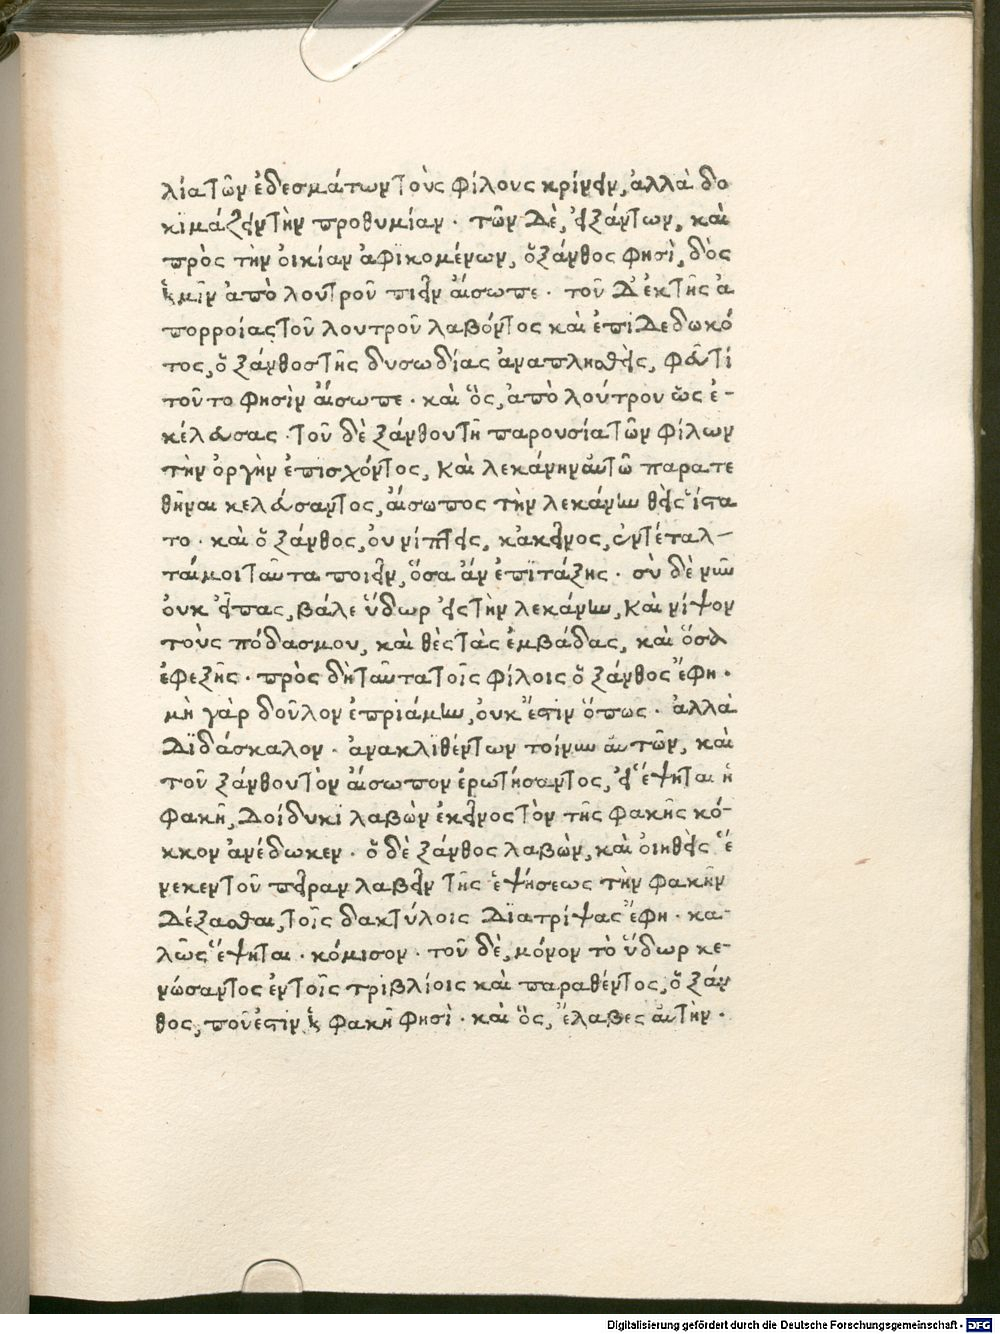 λία τῶν ἐδεσμάτων τοὺς φίλους κρίνειν, ἀλλὰ δο
κϊμάζειν τὴν προθυμίαν · τῶν δὲ, εἰξάντων, καὶ
πρὸς τὴν οἰκίαν ἀφϊκομένων, ὅ ξάνθος φησὶ, δὸς
ἡμῖν ἀπὸ λουτροῦ πιεῖν ἄισωπε · τοῦ δ' ἐκ τῆς ἀ
πορροίας τοῦ λουτροῦ λαβόντος καὶ ἐπιδεδωκό
τος, ὅ ξάνθος τῆς δυσωδίας ἀναπλησθεὶς, φεῦ τί
τοῦτο φησὶν ἄισωπε · καὶ ὃς, ἀπὸ λούτρου ὥς ἐ-
κέλευσας · τοῦ δὲ ξάνθου τῇ παρουσία τῶν φίλων
τὴν ὀργὴν ἐπισχόντος, καὶ λεκάνην αὐτῶ παρατε
θῆναι κελεύσαντος, ἄισωπος τὴν λεκάνην θεὶς ἵστα
το · καὶ ὅ ξάνθος, οὐ νίπτεις, κἀκεῖνος, ἐντέταλ-
ταί μοι ταῦτα ποιεῖν, ὅσα ἂν ἐπϊτάξης · σὺ δὲ νῦν
ὀυκ εἶπας, βάλε ὕδωρ εἰς τὴν λεκάνην, καὶ νίψον
τοὺς πόδας μου, καὶ θὲς τὰς ἐμβάδας, καὶ ὅσα
ἐφεξῆς · πρὸς δὴ ταῦτα τοῖς φίλοις ὅ ξάνθος ἔφη ·
μὴ γὰρ δοῦλον ἐπριάμην, ὀυκ ἔστιν ὅπως · ἀλλὰ
δϊδάσκαλον · ἀνακλϊθέντων τοίνυν αὐτῶν, καὶ
τοῦ ξάνθου τὸν ἄισωπον ἐρωτήσαντος, εἰ ἕψηται ἡ
φακῆ, δοίδυκϊ λαβὼν ἐκεῖνος τὸν τῆς φακῆς κό-
κκον ἀνέδωκεν · ὅ δὲ ξάνθος λαβὼν, καὶ οἰηθεὶς ἕ
νεκεν τοῦ πεῖραν λαβεῖν τῆς ἑψήσεως τὴν φακῆν
δέξασθαι, τοῖς δακτύλοις δϊατρίψας ἔφη · κα-
λῶς ἕψηται · κόμισον · τοῦ δὲ, μόνον τὸ ὕδωρ κε-
νώσαντος ἐν τοῖς τριβλίοις καὶ παραθέντος, ὅ ξάν
θος, ποῦ ἐστιν ἡ φακῆ φησὶ · καὶ ὃς, ἔλαβες αὐτὴν ·
Digitalisierung gefördert durch die Deutsche Forschungsgemeinschaft - DFG